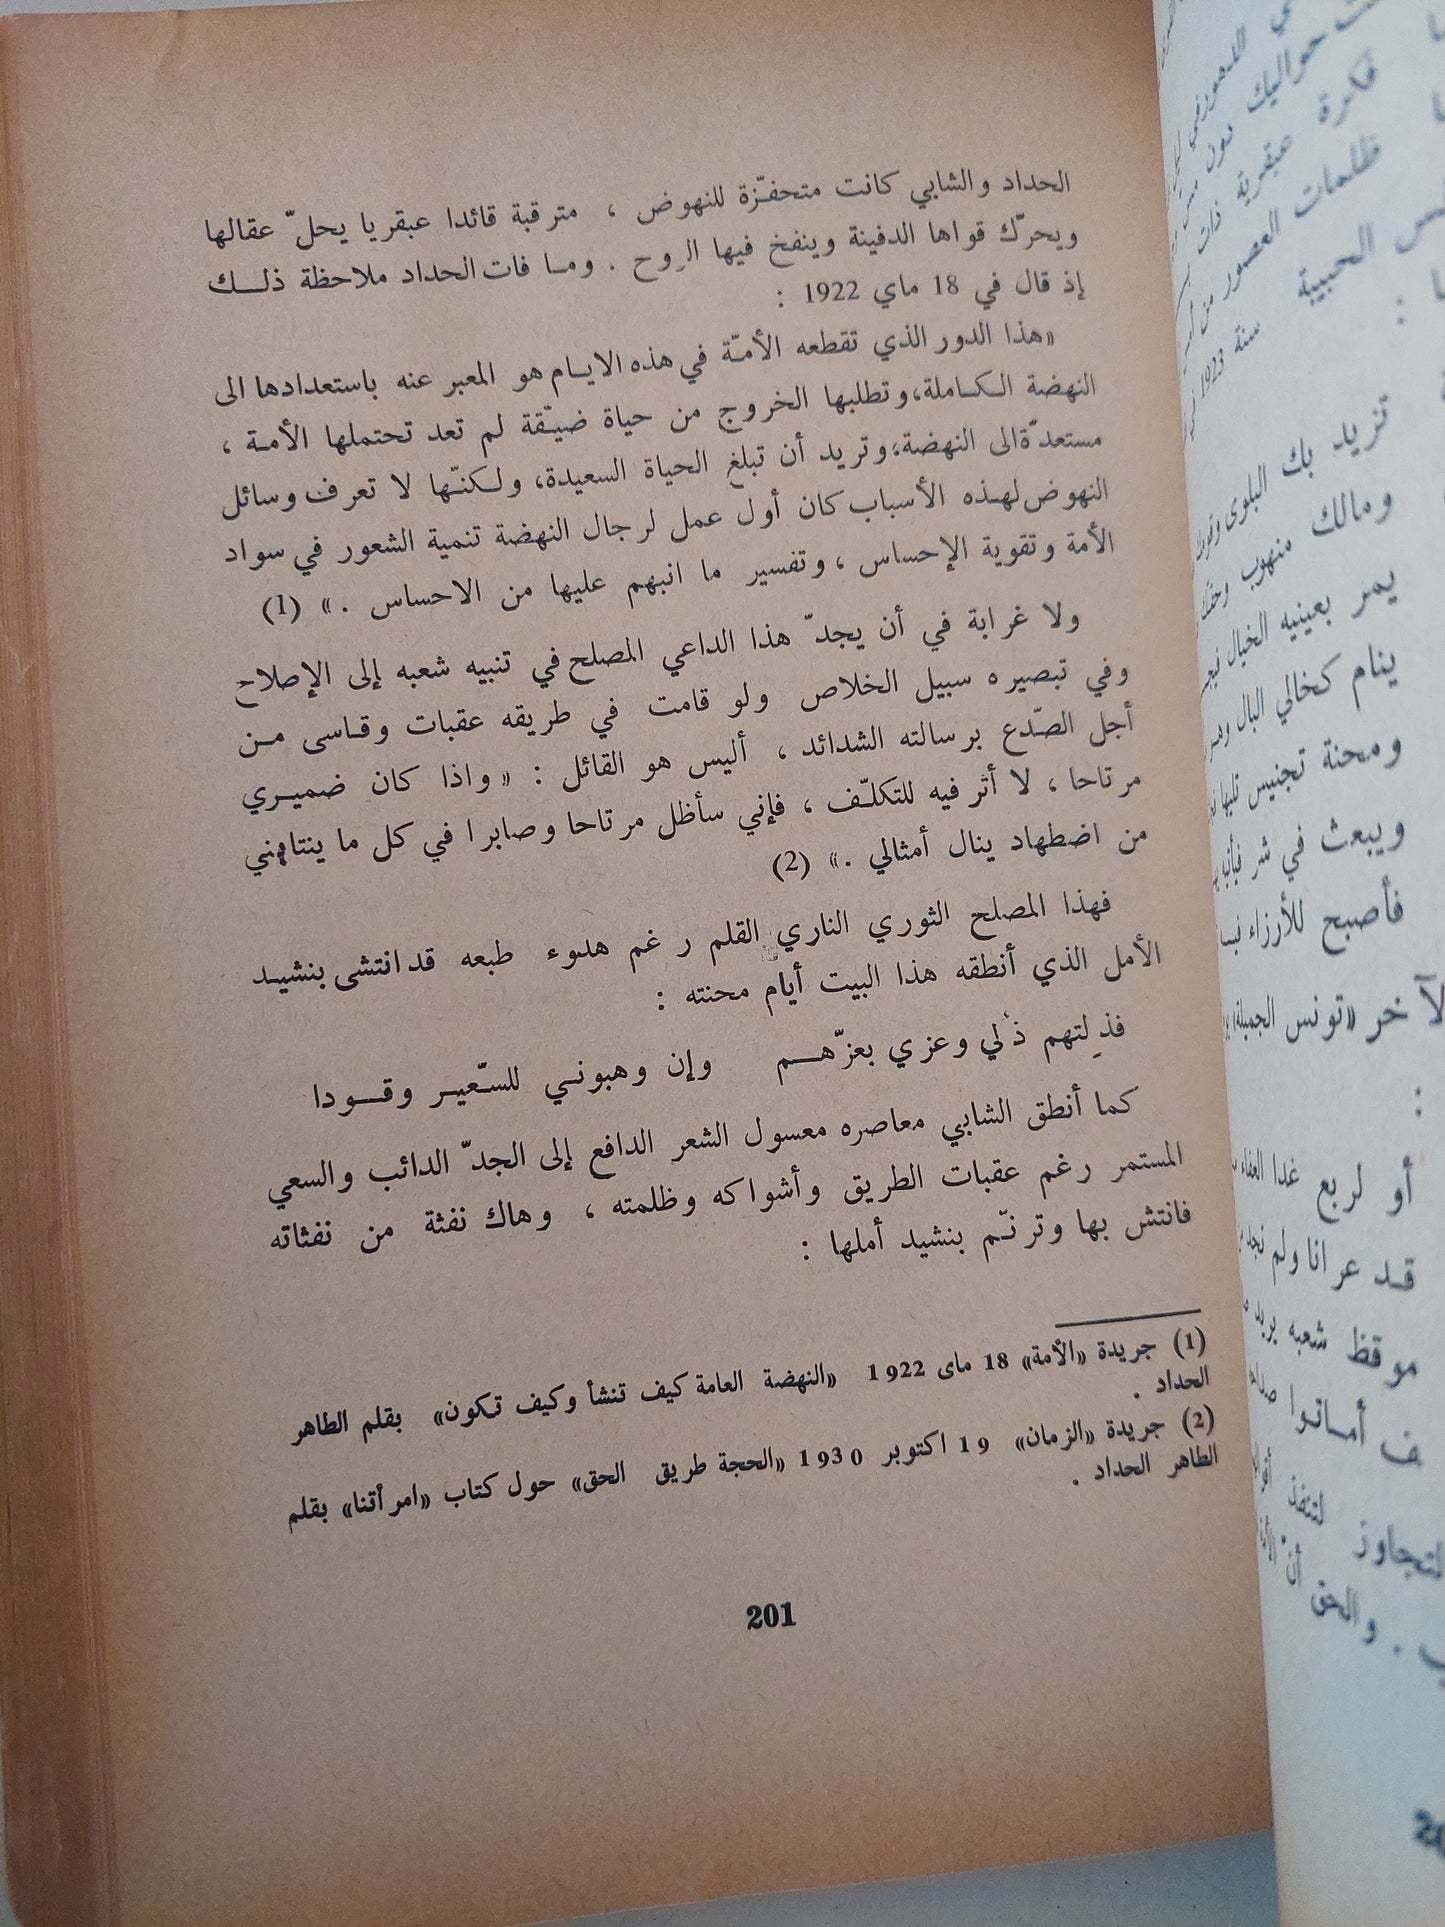 الحداد والشابي كانت متحفّزة للنهوض ، مترقبة قائدا عبقريا يحلّ عقالها
ويحرّك قواها الدفينة وينفخ فيها الروح . وما فات الحداد ملاحظة ذلك
إذ قال في 18 ماي 1922 :
«هذا الدور الذي تقطعه الأمّة في هذه الايام هو المعبر عنه باستعدادها الى
النهضة الكاملة، وتطلبها الخروج من حياة ضيّقة لم تعد تحتملها الأمة ،
مستعدّة الى النهضة، وتريد أن تبلغ الحياة السعيدة، ولكنّها لا تعرف وسائل
النهوض لهذه الأسباب كان أول عمل لرجال النهضة تنمية الشعور في سواد
الأمة وتقوية الإحساس ، وتفسير ما انبهم عليها من الاحساس .» (1)
ولا غرابة في أن يجدّ هذا الداعي المصلح في تنبيه شعبه إلى الإصلاح
وفي تبصيره سبيل الخلاص ولو قامت في طريقه عقبات وقاسى من
أجل الصّدع برسالته الشدائد ، أليس هو القائل : «واذا كان ضميري
مرتاحا ، لا أثر فيه للتكلّف ، فإني سأظل مرتاحا وصابرا في كل ما ينتابني
من اضطهاد ينال أمثالي .» (2)
فهذا المصلح الثوري الناري القلم رغم هدوء طبعه قد انتشى بنشيد
الأمل الذي أنطقه هذا البيت أيام محنته :
فذلتهم ذلي وعزي بعزّهم وإن وهبوني للسّعير وقودا
كما أنطق الشابي معاصره معسول الشعر الدافع إلى الجدّ الدائب والسعي
المستمر رغم عقبات الطريق وأشواكه وظلمته ، وهاك نفثة من نفثاته
فانتش بها وترنّم بنشيد أملها :
(1) جريدة «الأمة» 18 ماى 1922 «النهضة العامة كيف تنشأ وكيف تكون» بقلم الطاهر
الحداد .
(2) جريدة «الزمان» 19 اكتوبر 1930 «الحجة طريق الحق» حول كتاب «امرأتنا» بقلم
الطاهر الحداد .
201
حواليك دون
فكرة عبقرية ذات
ظلمات العصور من
الحبيبة سنة 1923
تزيد بك البلوى
ومالك منهوب
يمر بعينيه الخيال
ينام كخالي البال
ومحنة تجنيس تليها
ويبعث في شر
فأصبح للأرزاء
لآخر «تونس الجميلة»
أو لربع غدا العفاء
قد عرانا ولم نجد
موقظ شعبه يريد
أماتوا
لتنفذ
والحق أنّ